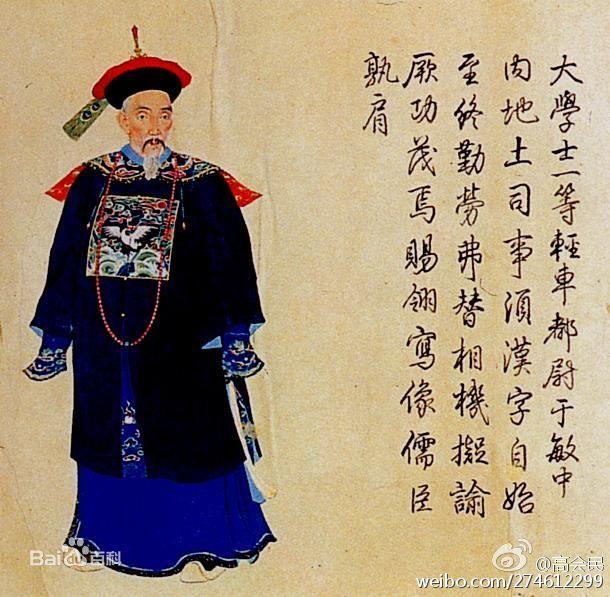 大學士一等輕車都尉于敏中
內地土司事須漢字自始
至終勤勞弗替相機擬諭
厥功茂焉賜翎寫像儒臣
孰肩
Baidu百科
@高会民
weibo.com/274612299